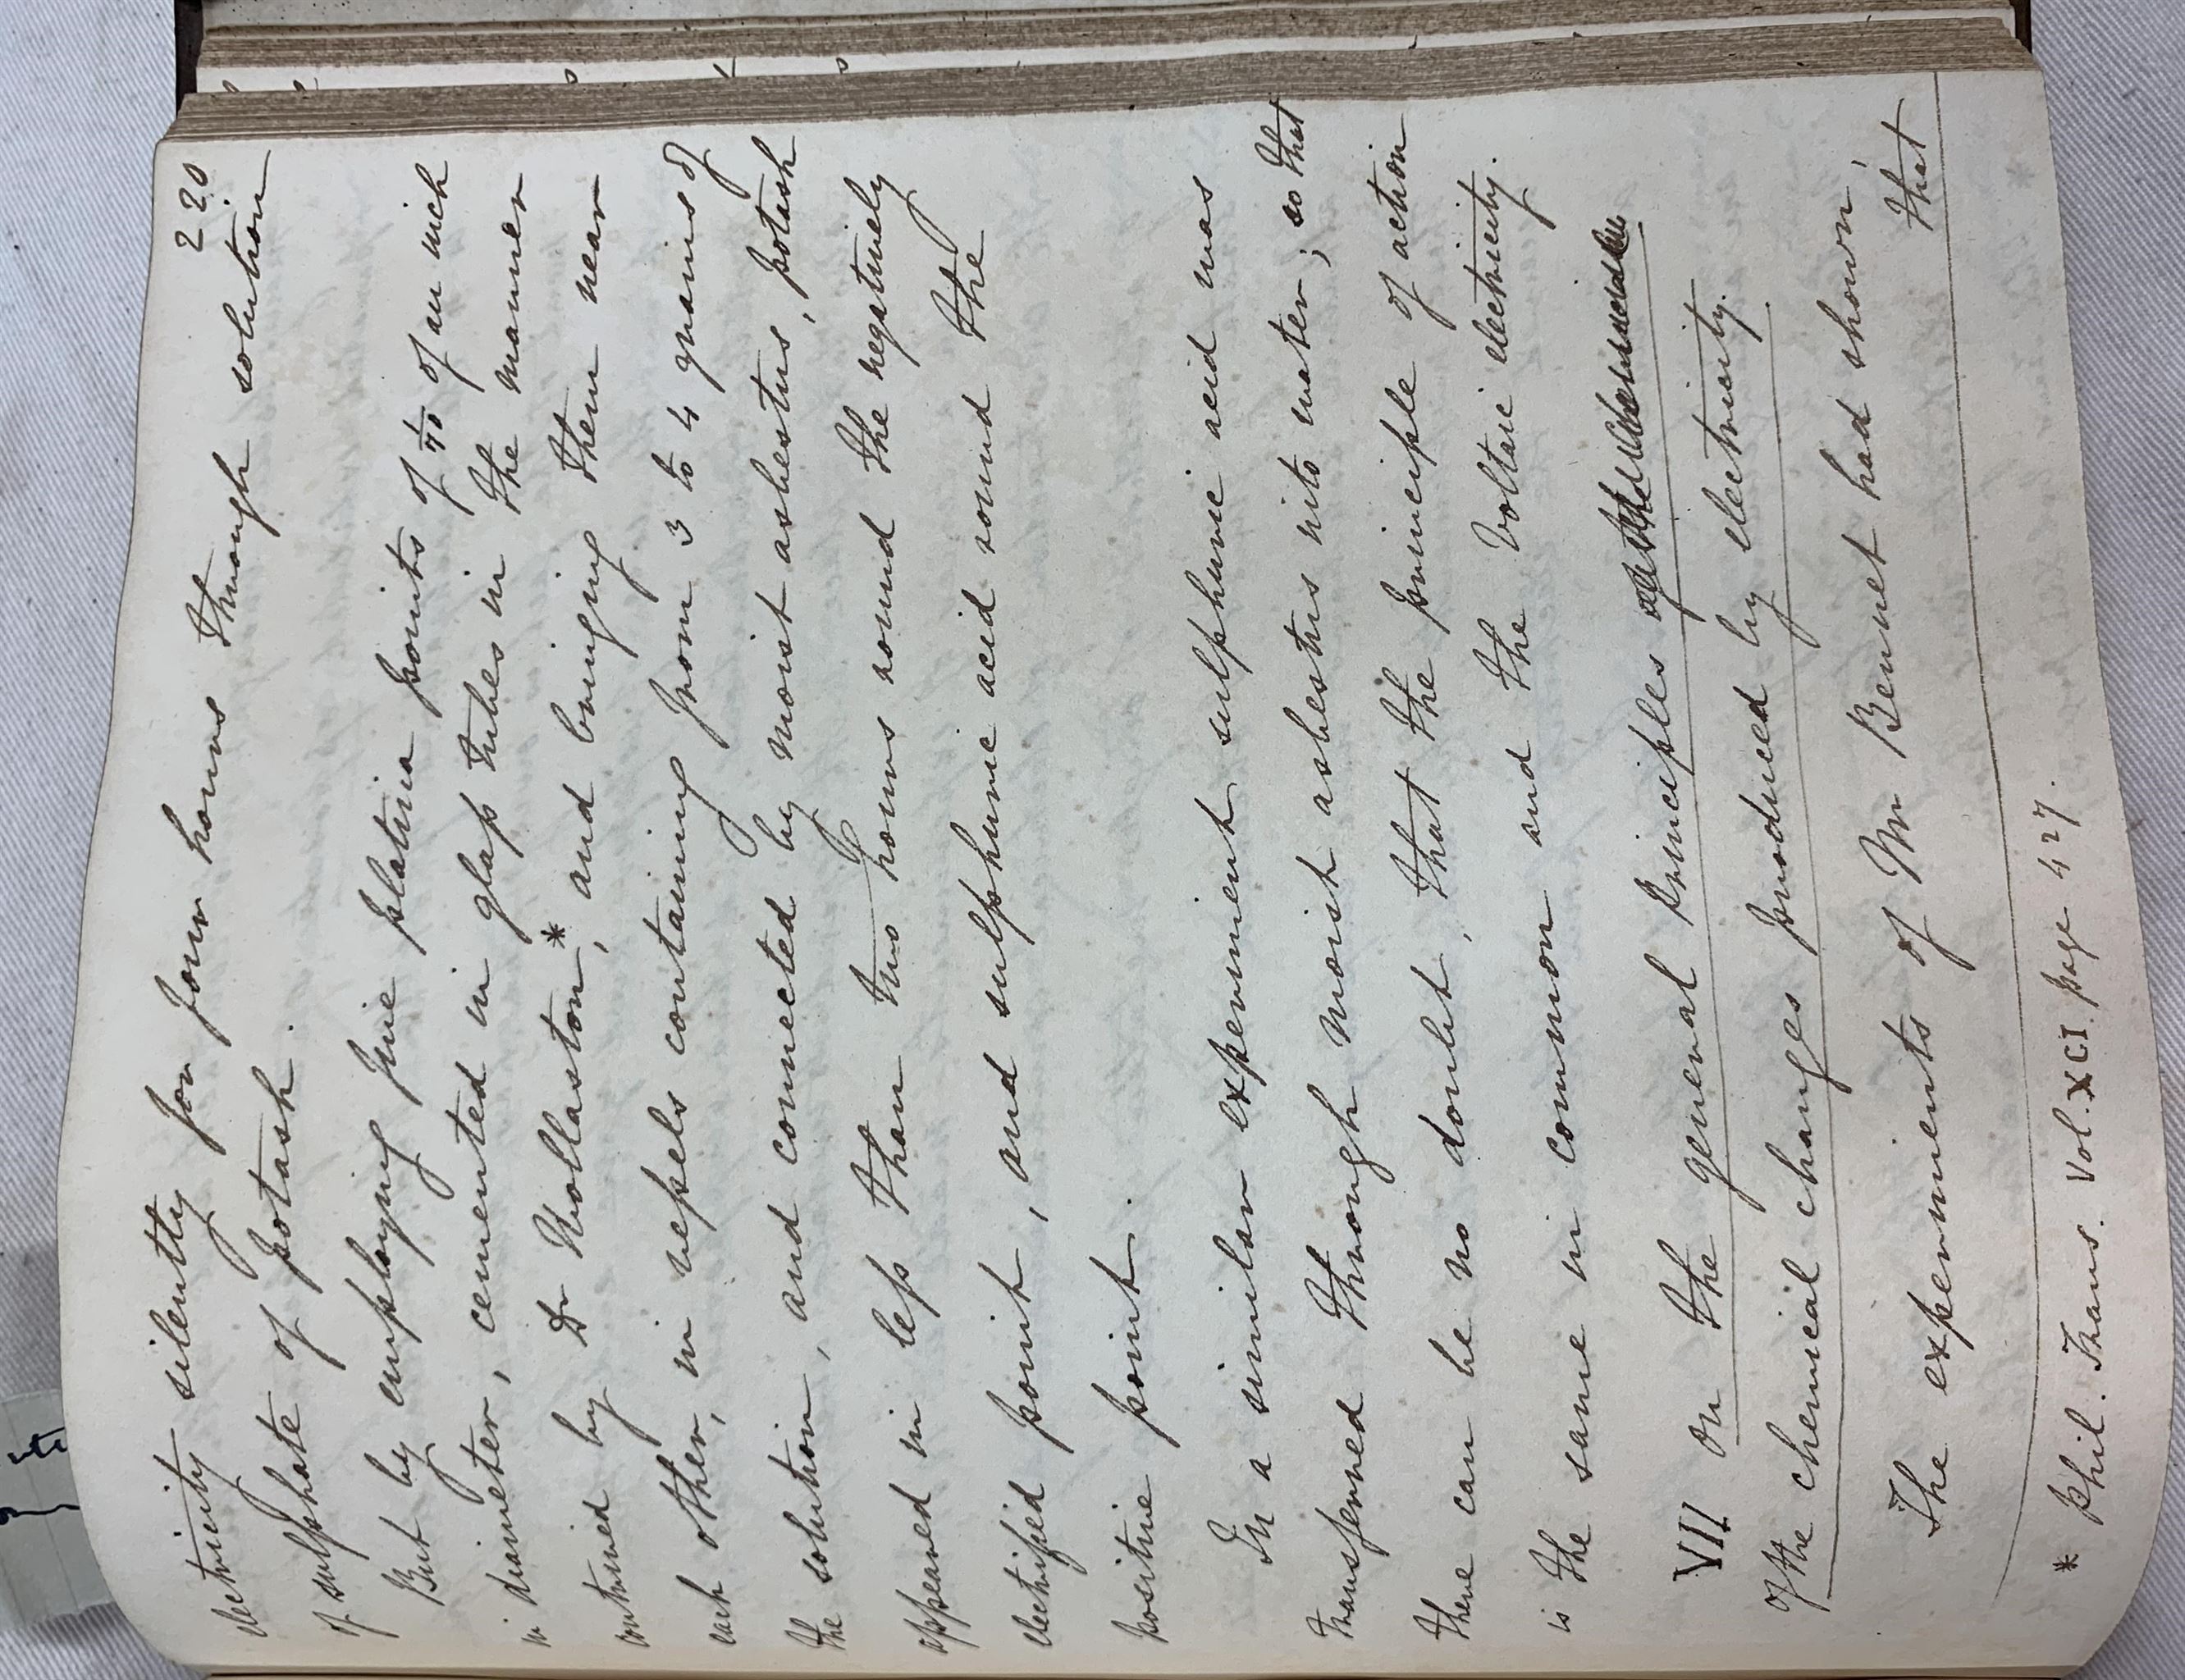 220
electricity silently for four hours through solution
of sulphate of potash.
But by employing fine platina points of 1/70 of an inch
in diameter, cemented in glass tubes in the manner
contrived by Dr Wollaston*, and bringing them near
each other, in vessels containing from 3 to 4 grains of
the solution, and connected by moist asbestus, potash
appeared in less than two hours round the negatively
electrified point, and sulphuric acid round the
positive point.
In a similar experiment sulphuric acid was
transferred through moist asbestus into water; so that
there can be no doubt, that the principle of action
is the same in common and the Voltaic electricity.
VII On the general principles of the
of the chemical changes produced by electricity.
The experiments of Mr Bennet had shown,
that
* Phil. Trans. Vol. XCI. page 427.